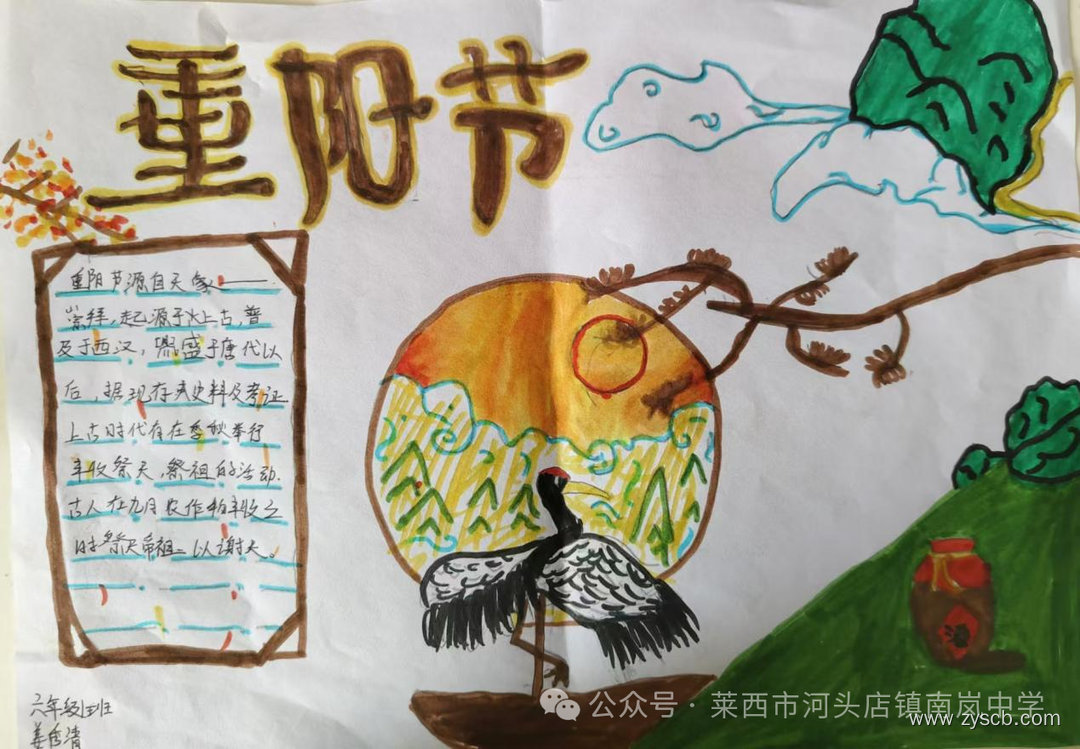 重阳节
重阳节源自天象
崇拜，起源于上古，普
及于西汉，鼎盛于唐代以
后，据现存史料及考证
上古时代有在季秋举行
丰收祭天、祭祖的活动.
古人在九月农作物丰收之
时祭天帝祖，以谢天。
六年级班
姜清
公众号·莱西市河头店镇南岚中学
www.zyscb.com